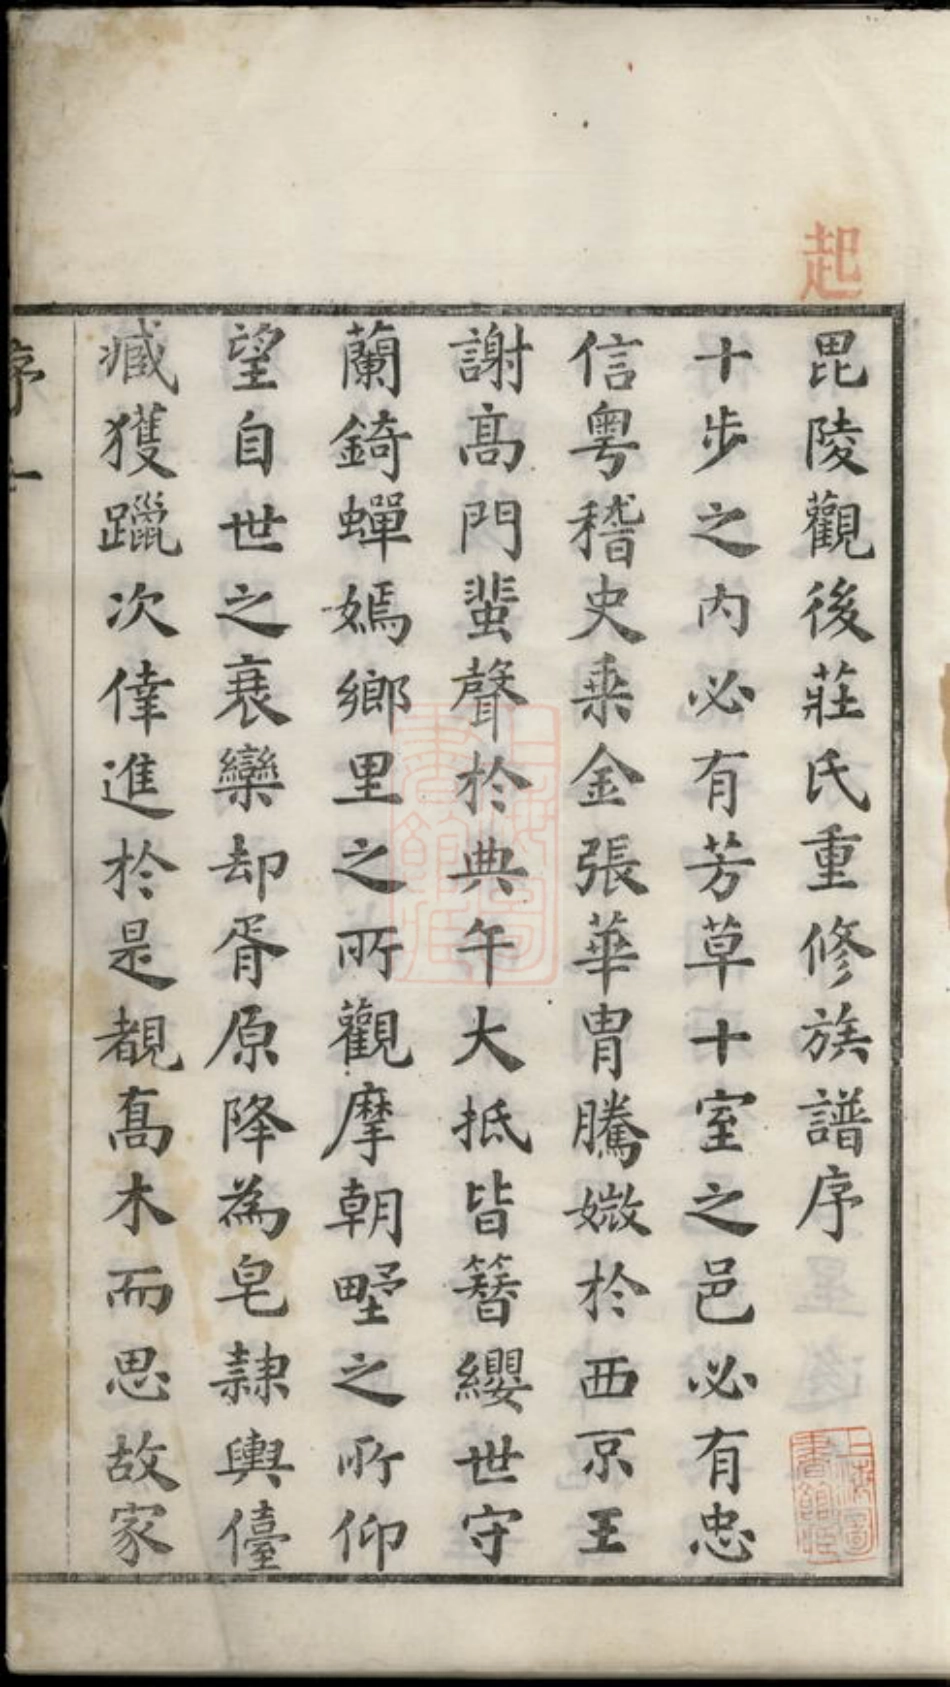 起
毘陵觀後莊氏重修族譜序
十步之內必有芳草十室之邑必有忠
信粵稽史乘金張華胄騰媺於西京王
謝高門蜚聲於典午大抵皆簪纓世守
蘭錡蟬嫣鄉里之所觀摩朝野之所仰
望自世之衰欒却胥原降為皂隷輿儓
臧獲躐次倖進於是覩喬木而思故家
序
一
上海圖書館藏
上海圖書館藏